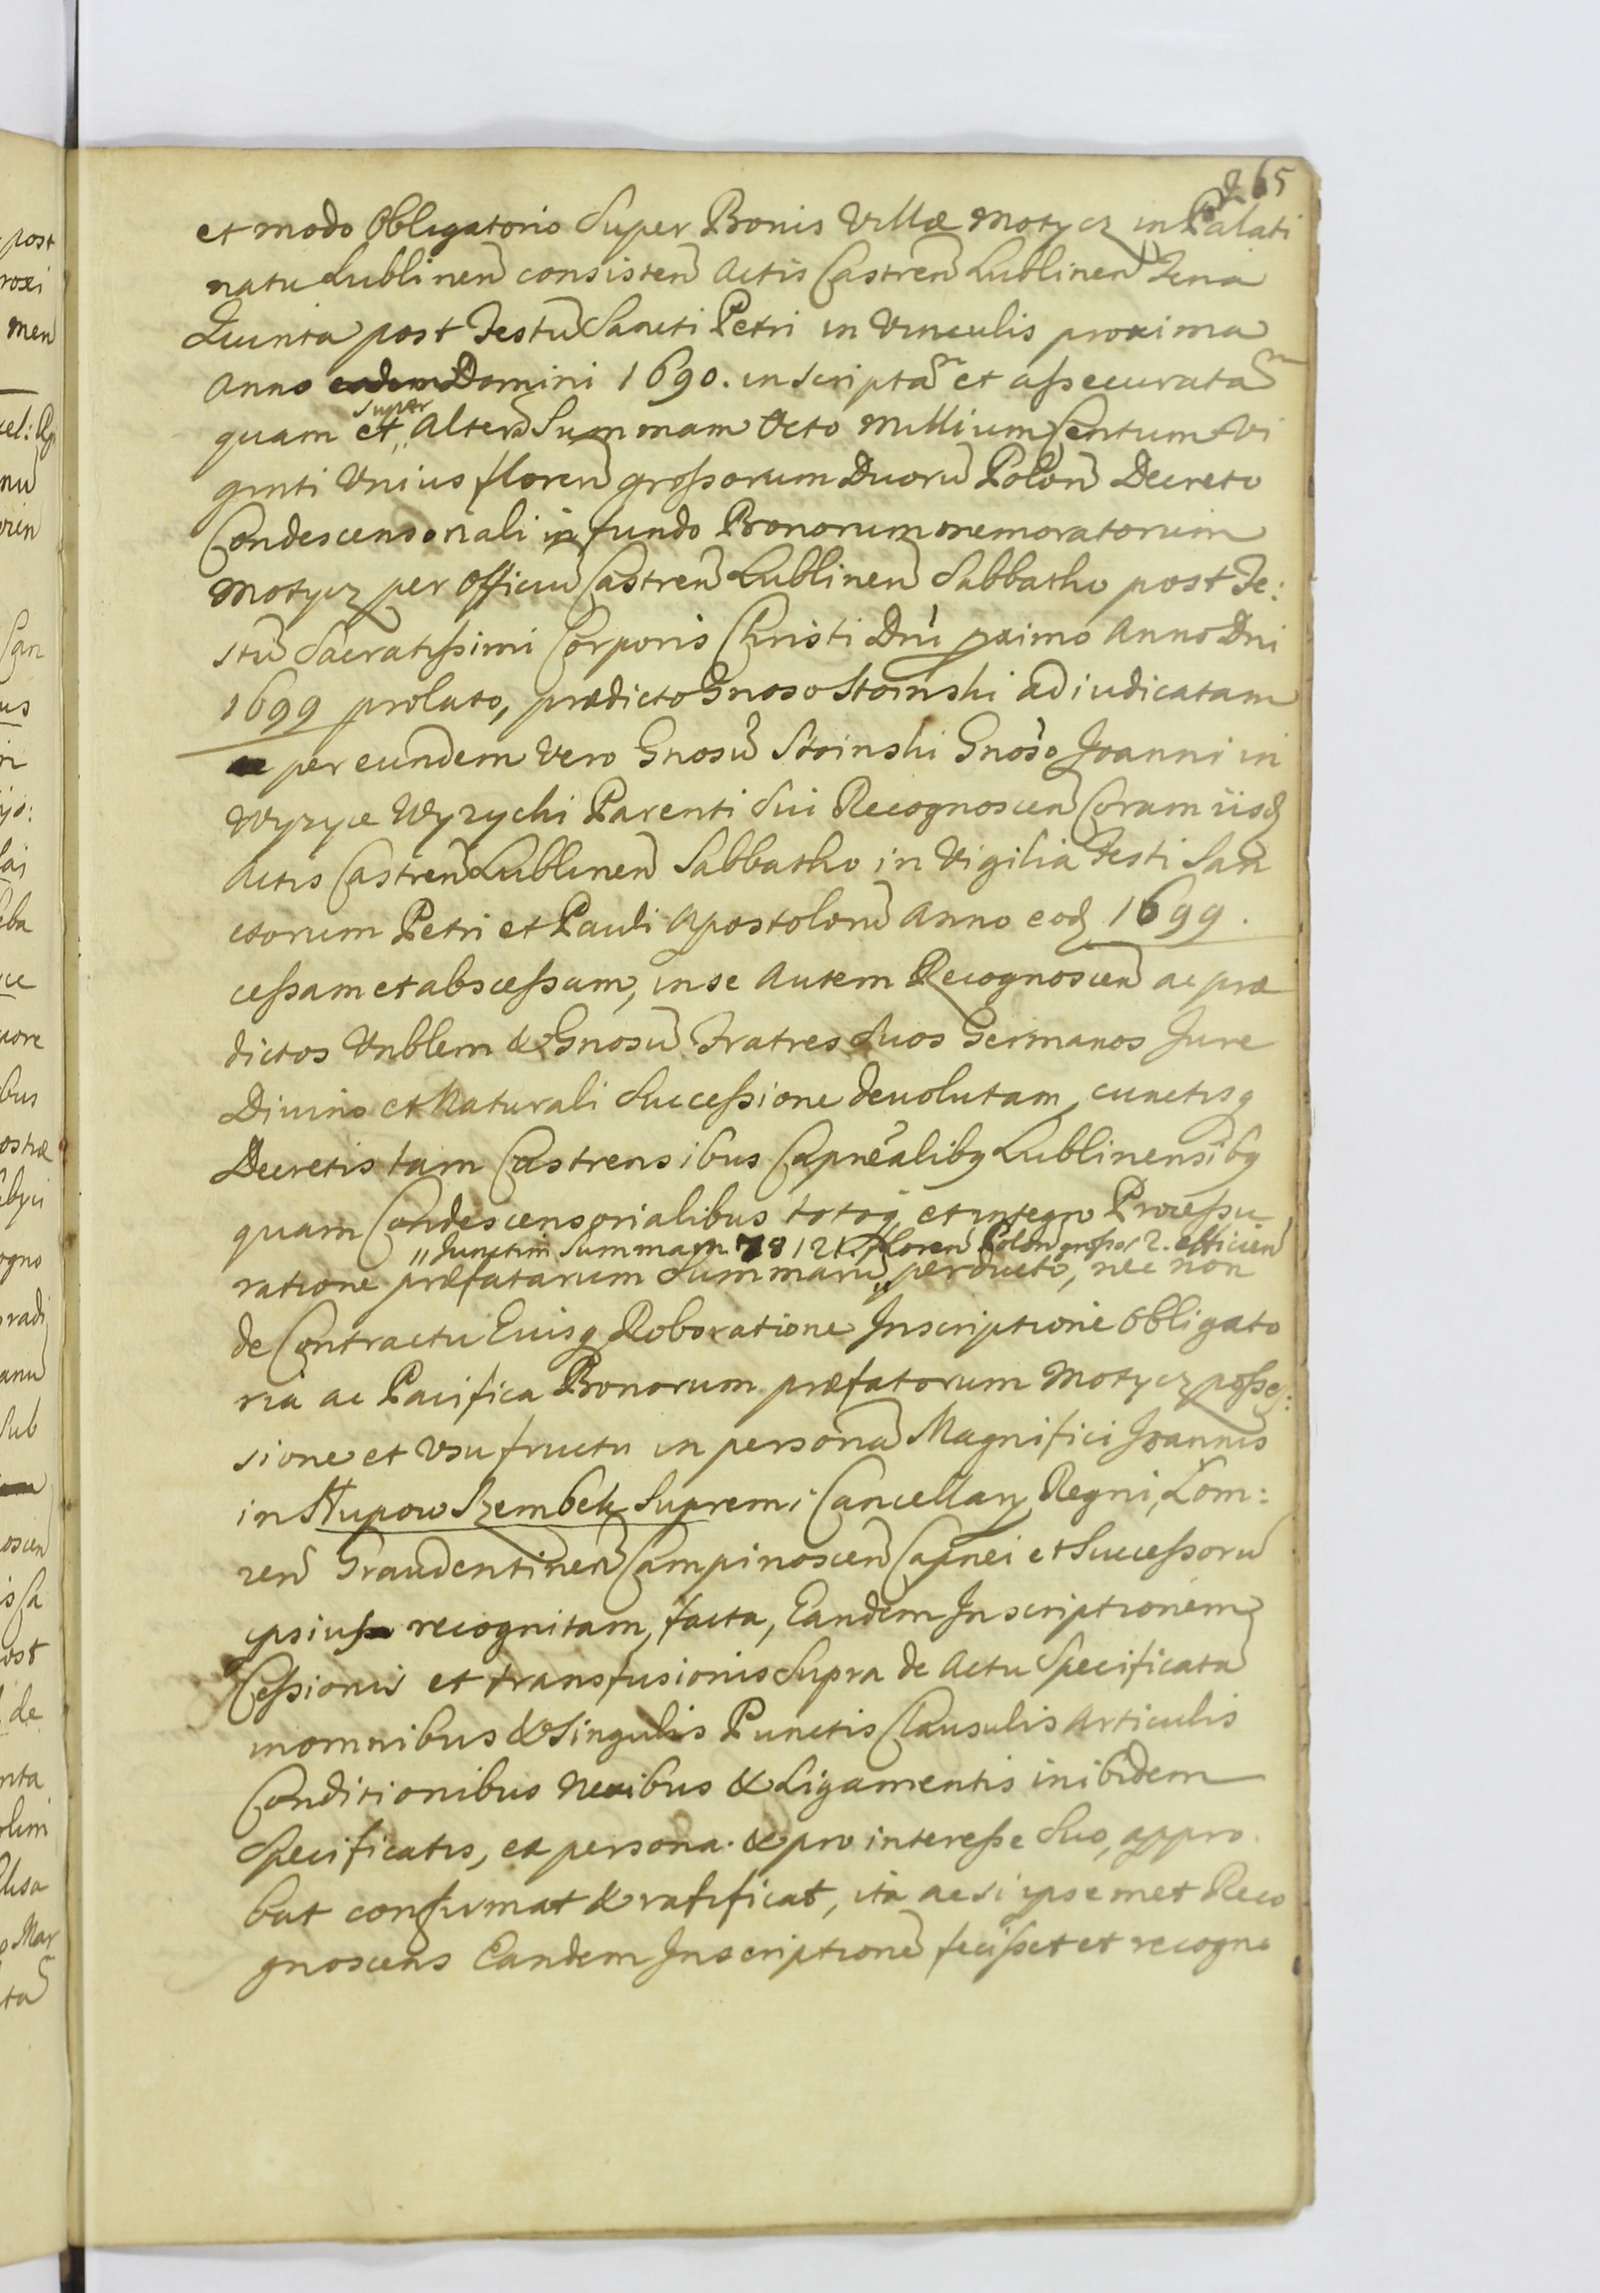 265
et modo Obligatorio Super Bonis Villæ Motycz in Palati
natu Lublinen consisten Actis Castren Lublinen Feria
Quinta post Festu Sancti Petri in Vinculis proxima
Anno Domini 1690. inscriptam et assecuratam
super
quam et,, Altera Summam Octo Millium Centum Vi
ginti Unius floren grossorum Duoru Polon Decreto
Condescensoriali in fundo Bonorum memoratorum
Motycz per Officiu Castren Lublinen Sabbatho post Fe:
stu Sacratissimi Corporis Christi Dni pximo Anno Dni
1699 prolato, prædicto Gnoso Stoinski adiudicatam
per eundem Vero Gnosu Stoinski Gnoso Joanni in
Wyzyce Wyzycki Parenti Sui Recognoscen Coram iisq
Actis Castren Lublinen Sabbatho in Vigilia Festi San
ctorum Petri et Pauli Apostoloru Anno eoq 1699.
cessam et abscessam, in se Autem Recognoscen ac præ
dictos Vnblem & Gnosu Fratres Suos Germanos Jure
Diuino et Naturali Successione deuolutam, cunctisq
Decretis tam Castrensibus Capnealibq Lublinensibq
quam Condescensorialibus totoq et integro Processu
,,Junctim Summam 78121. floren Polon grossor 2. efficien
ratione præfatarum Summaru,, perducto, nec non
de Contractu Eiusq Roboratione Inscriptione Obligato
ria ac Pacifica Bonorum præfatorum Motycz posses:
sione et Vsufructu in persona Magnifici Joannis
in Słupow Szembek Supremi Cancellary Regni, Lom:
zen Graudentinen Campinoscen Capnei et Successoru
ipsius recognitam, facta, Eandem Inscriptionem
Cessionis et transfusionis Supra de Actu Specificata
in omnibus & Singulis Punctis Clausulis Articulis
Conditionibus Nexibus & Ligamentis inibidem
Specificatis, ex persona & pro interesse Suo, appro
bat confirmat & ratificat, ita ac si ipsemet Reco
gnoscens Eandem Inscriptione fecisset et recogno